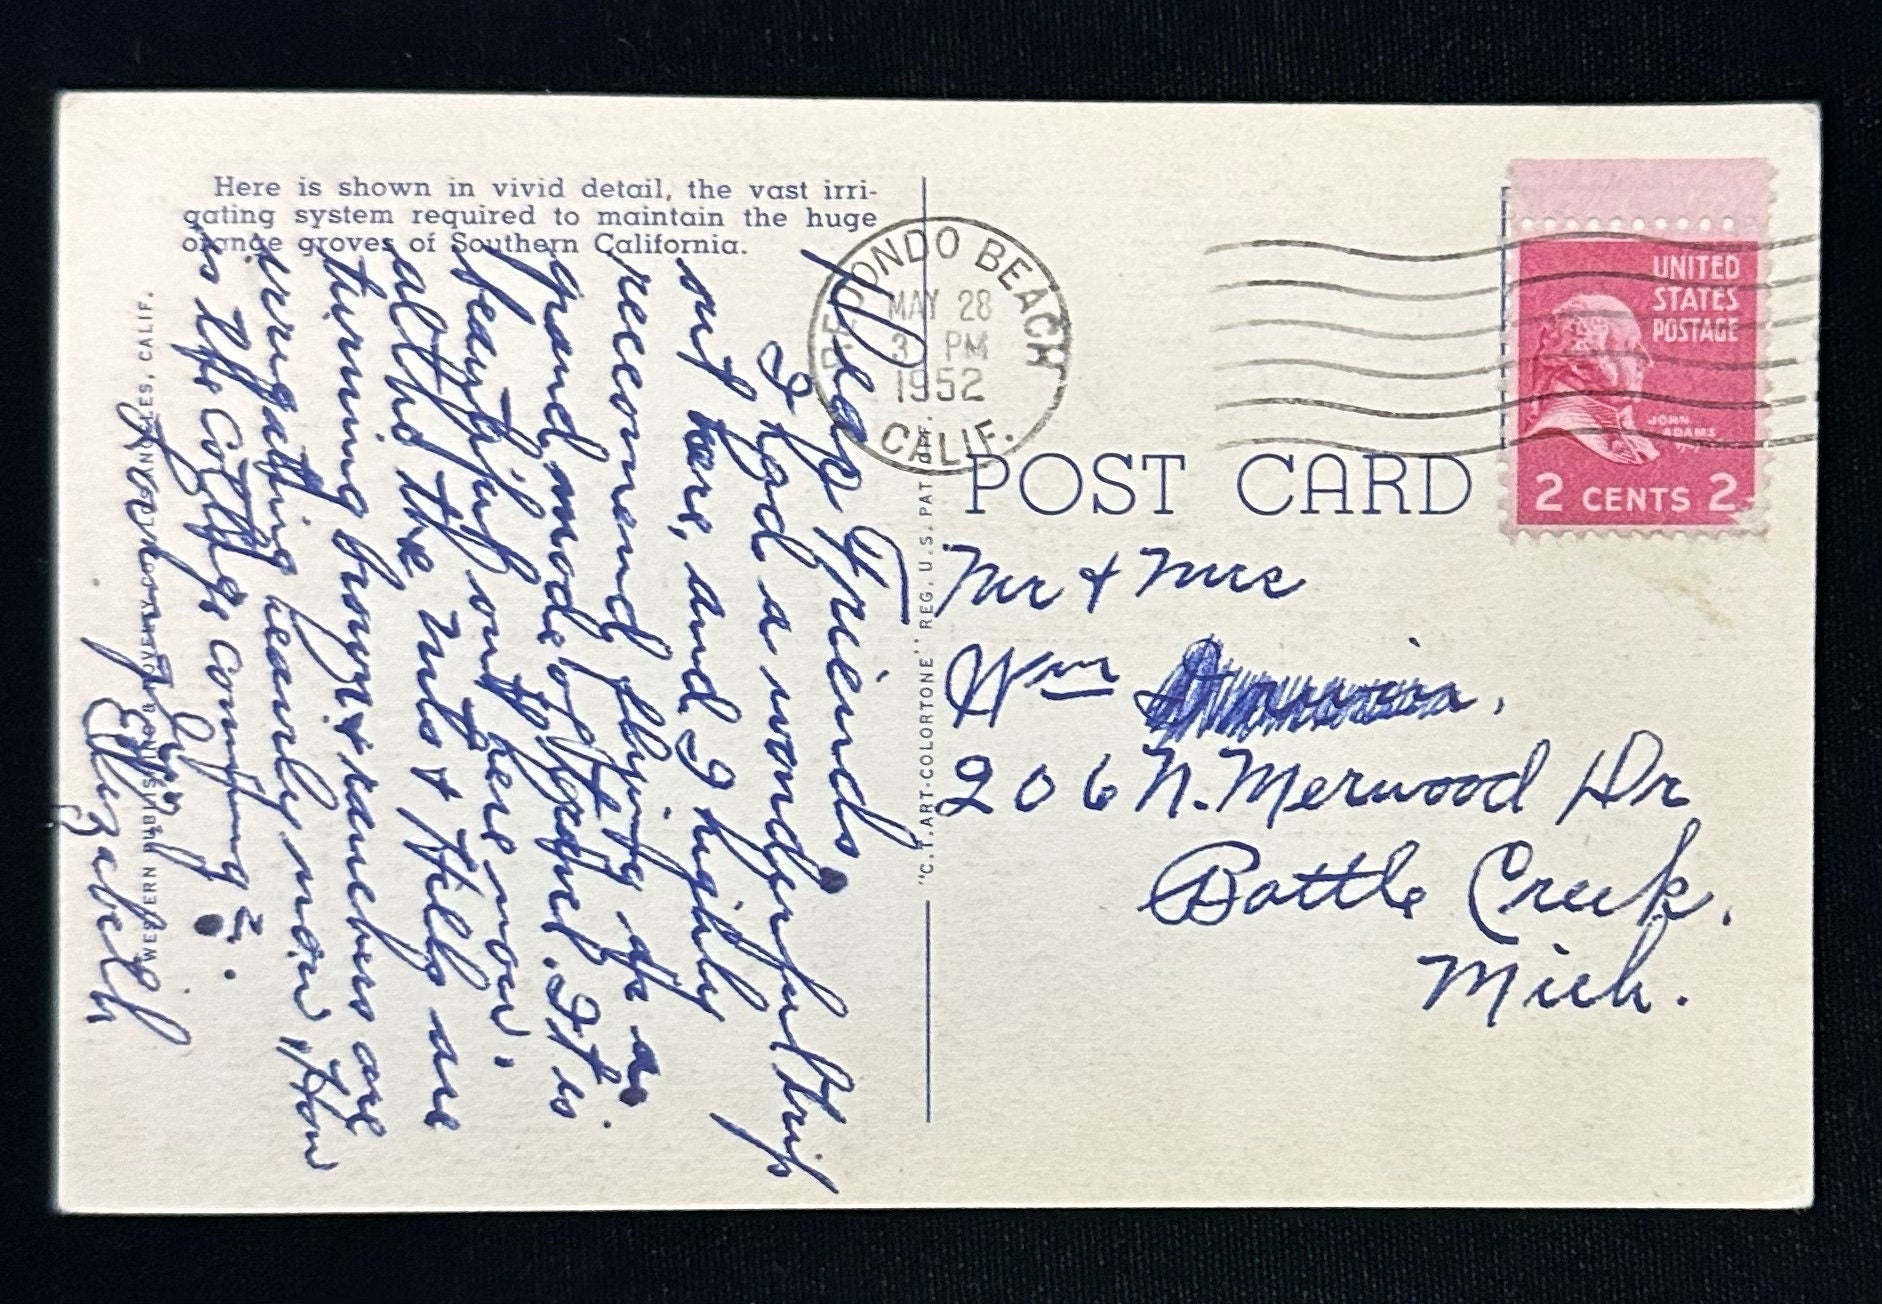 Here is shown in vivid detail, the vast irri-
gating system required to maintain the huge
orange groves of Southern California.
Dear Friends
I had a wonderful trip
out here, and I highly
reccomend flying as a
grand mode of travel. It is
beautiful out here now,
altho the mts & Hills are
turning brown & ranchers are
irrigating nearly now. How
is the Cottage coming?
Love
Elizabeth
WESTERN PUBLISHING & NOVELTY CO., LOS ANGELES, CALIF.
"C.T. ART-COLORTONE" REG. U.S. PAT. OFF.
REDONDO BEACH
MAY 28
3 PM
1952
CALIF.
UNITED
STATES
POSTAGE
JOHN
ADAMS
2 CENTS 2
POST CARD
Mr & Mrs
Wm
206 N. Merwood Dr
Battle Creek.
Mich.